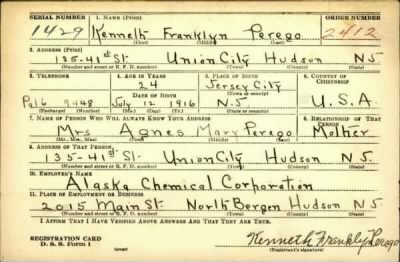 SERIAL NUMBER 1. NAME (Print) ORDER NUMBER
1429 Kenneth Franklyn Perego 2412
(First) (Middle) (Last)
2. ADDRESS (Print)
135-41st St. Union City Hudson NJ
(Number and street or R. F. D. number) (Town) (County) (State)
3. TELEPHONE 4. AGE IN YEARS 5. PLACE OF BIRTH 6. COUNTRY OF CITIZENSHIP
24 Jersey City
DATE OF BIRTH (Town or county)
9448 July 12 1916 N.J. U.S.A.
(Mo.) (Day) (Yr.) (State or country)
7. NAME OF PERSON WHO WILL ALWAYS KNOW YOUR ADDRESS 8. RELATIONSHIP OF THAT PERSON
Mrs Agnes Mary Perego Mother
(Mr., Mrs., Miss) (First) (Middle) (Last)
9. ADDRESS OF THAT PERSON
135-41st St. Union City Hudson NJ
(Number and street or R. F. D. number) (Town) (County) (State)
10. EMPLOYER'S NAME
Alaska Chemical Corporation
11. PLACE OF EMPLOYMENT OR BUSINESS
2015 Main St North Bergen Hudson NJ
(Number and street or R. F. D. number) (Town) (County) (State)
I AFFIRM THAT I HAVE VERIFIED ABOVE ANSWERS AND THAT THEY ARE TRUE.
REGISTRATION CARD Kenneth Franklyn Perego
D. S. S. Form 1 (over) (Registrant's signature)